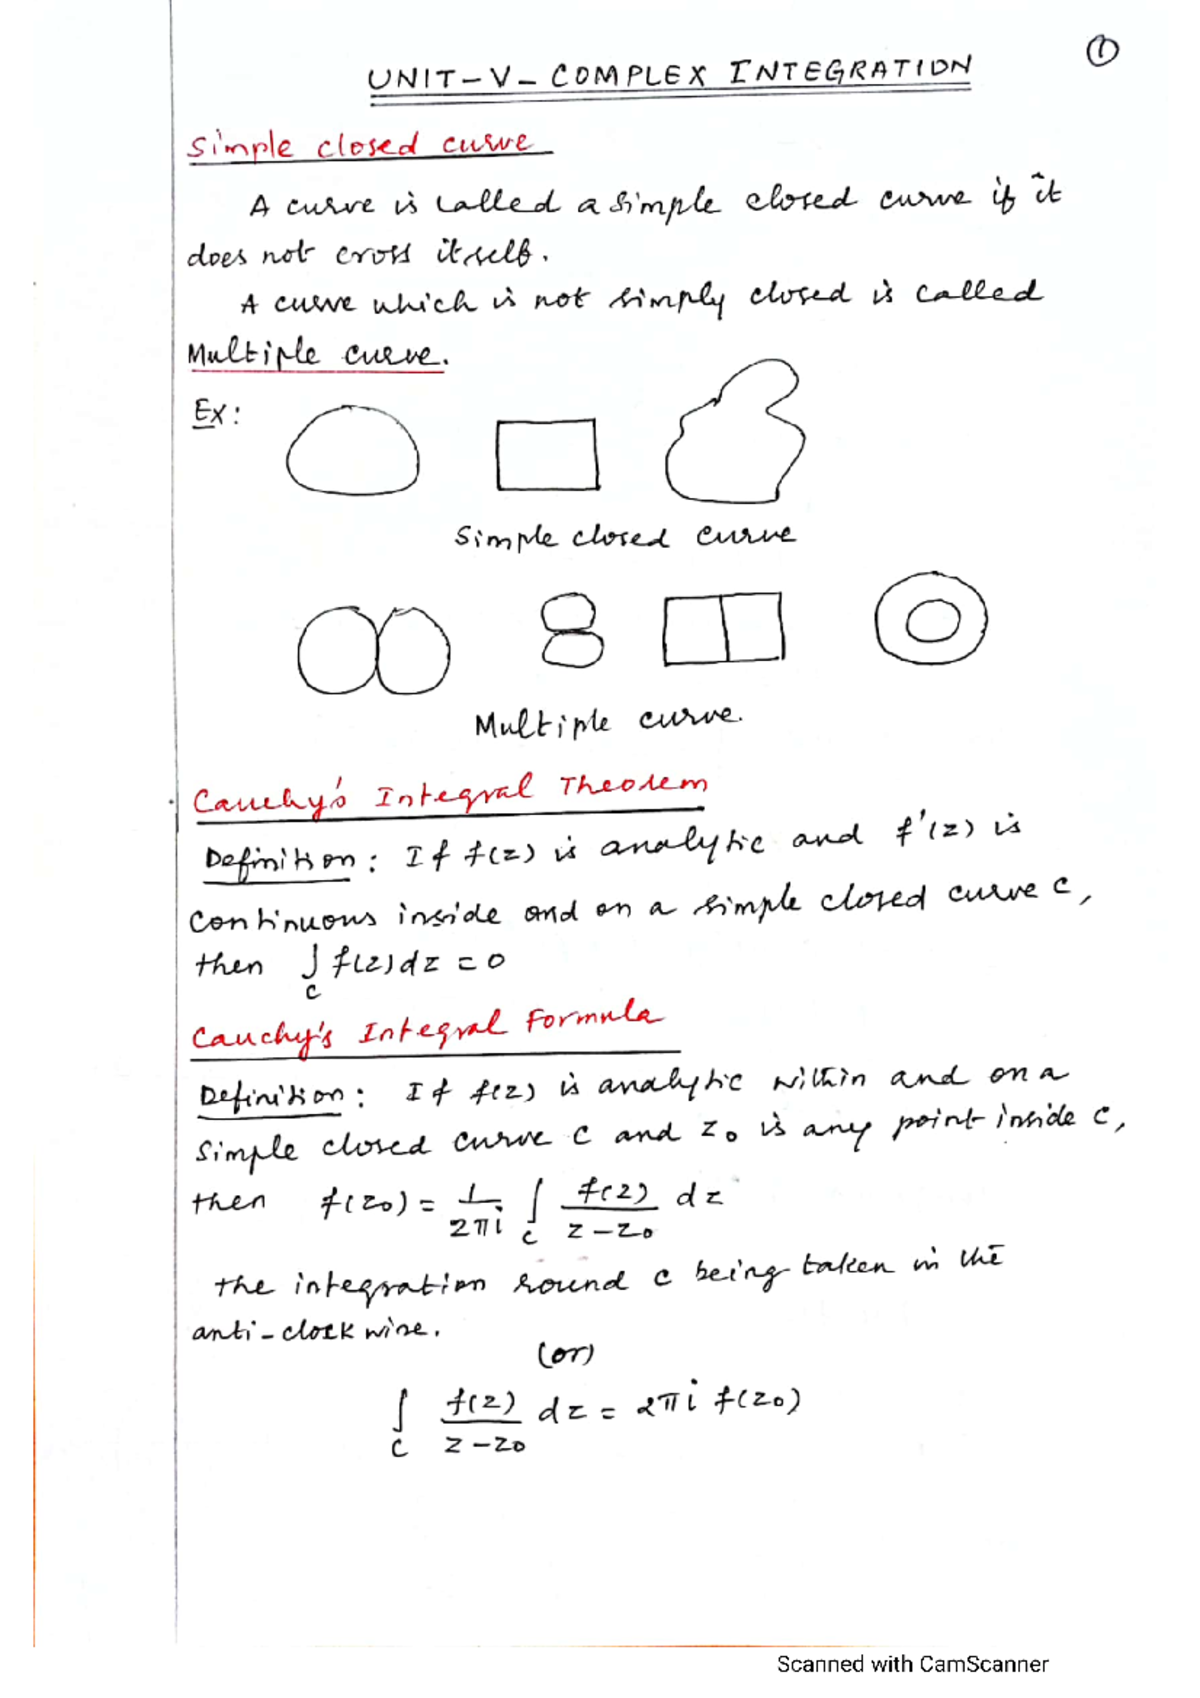 ①
UNIT-V-COMPLEX INTEGRATION
Simple closed curve
A curve is called a simple closed curve if it
does not cross itself.
A curve which is not simply closed is called
Multiple curve.
Ex:
Simple closed curve
Multiple curve.
Cauchy's Integral Theorem
Definition: If f(z) is analytic and f'(z) is
continuous inside and on a simple closed curve c,
then ∫ f(z)dz = 0
c
Cauchy's Integral Formula
Definition: If f(z) is analytic within and on a
simple closed curve c and z₀ is any point inside c,
then f(z₀) = 1/2πi ∫c f(z)/z-z₀ dz
the integration round c being taken in the
anti-clockwise.
(or)
∫c f(z)/z-z₀ dz = 2πi f(z₀)
Scanned with CamScanner